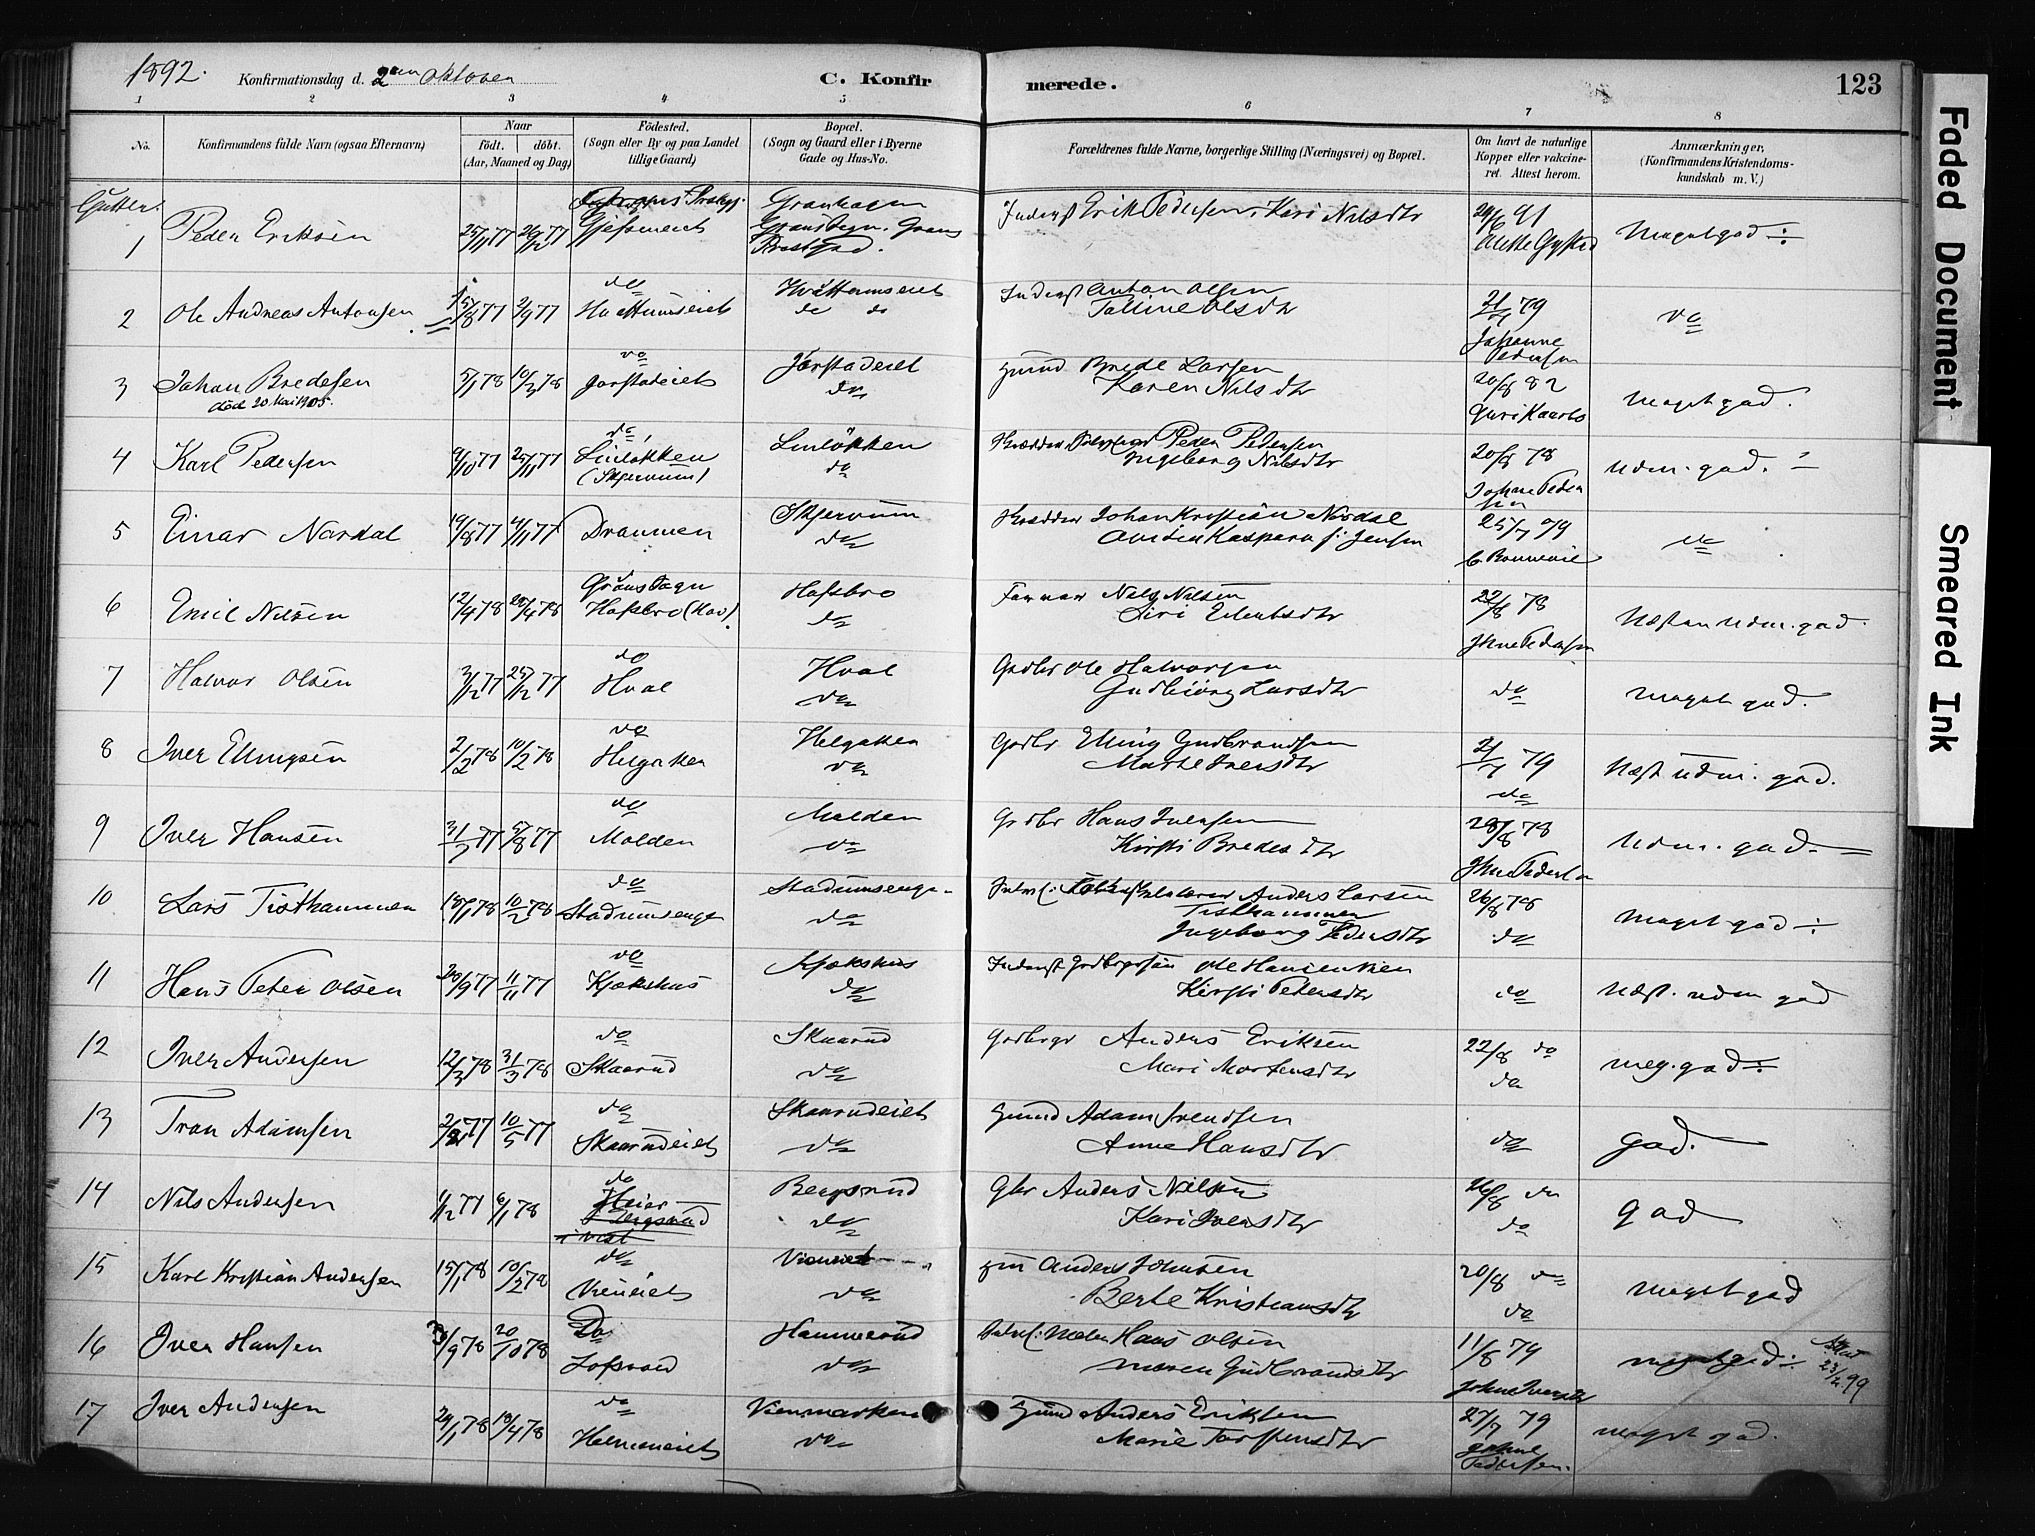 1892.
Konfirmationsdag d. 2den Oktober
C. Konfirmerede.
123
Faded Document
Smeared Ink
1 2 3 4 5 6 7 8
No.
Konfirmandens fulde Navn (ogsaa Efternavn)
Naar
Födt. döbt.
(Aar, Maaned og Dag)
Födested.
(Sogn eller By og paa Landet
tillige Gaard)
Bopæl.
(Sogn og Gaard eller i Byerne
Gade og Hus-No.
Forældrenes fulde Navne, borgerlige Stilling (Næringsvei) og Bopæl.
Om havt de naturlige
Kopper eller vakcine-
ret. Attest herom.
Anmærkninger.
(Konfirmandens Kristendoms-
kundskab m. V.)
Gutter.
1 Peder Eriksen 25/11 77 26/12 77 Granhagen Inderst Erik Pedersen, Kari Nilsdtr 91 Meget god ÷
2 Ole Andreas Antonsen 15/8 77 2/9 77 do Hvattumseiet Hvattumseiet do do Inderst Anton Olsen Olsdtr 2/7 79 Johanne Pedersen do
3 Johan Bredesen død 20 Mai 1905. 5/1 78 10/3 78 do Jorstadeiet Jorstadeiet do Husmd Brede Larsen Karen Nilsdtr 20/8 82 Guri Kaarbs Meget god.
4 Karl Pedersen 9/10 77 25/11 77 do Linløkken (Skjervum) Linløkken do Peder Pedersen Ingeborg Nilsdtr 20/8 78 Johne Pedersen udm. god.
5 Einar Nordal 19/8 77 4/11 77 Drammen Skjervum do Skrædder Johan Kristian Nordal Kaspara f: Jensen 25/7 79 do
6 Emil Nilsen 12/4 78 28/4 78 Grans Sogn Hofsbro (Hov) Hofsbro do Nils Nilsen Siri Eilertsdtr 22/8 78 Jhne Pedersen Næsten udm. god.
7 Halvor Olsen 3/12 77 25/12 77 do Hval Hval do Gaardbr Ole Halvorsen Gudbjørg Larsdtr do meget god.
8 Iver Ellingsen 2/2 78 10/2 78 do Helgaker Helgaker do Gaardbr Elling Gudbrandsen Marthe Iversdtr 2/7 79 do Næst udm. god.
9 Iver Hansen 31/7 77 5/8 77 do Molden Molden do Gardbr Hans Iversen Kirsti Bredesdtr 28/8 78 Jhne Pedersen Udm. god.
10 Lars Tisthammer 18/1 78 10/2 78 do Stadumsenge Stadumsenge do Anders Larsen Tisthammer Ingeborg Pedersdtr 26/8 78 do Meget god ÷
11 Hans Peter Olsen 29/9 77 11/11 77 do Kjækshus Kjækshus do Inderst Ole Hansen Kirsti Pedersdtr do Næst. udm god
12 Iver Andersen 12/3 78 31/3 78 do Skaarud Skaarud do Gardbrgr Anders Eriksen Mari Mortensdtr 22/8 do do meg. god ÷
13 Tron Adamsen 77 10/5 77 do Skaarudeiet Skaarudeiet do Husmd Adam Svendsen Anne Hansdtr do god.
14 Nils Andersen 1/12 77 6/1 78 do Bergsrud i vest Bergsrud do Gbr Anders Nilsen Kari Iversdtr 26/8 do do god
15 Karl Kristian Andersen 15/1 78 10/2 78 do Vieneiet Vieneiet do Anders Johnsen Berte Kristiansdtr 20/8 do do meget god
16 Iver Hansen 9 78 20/10 78 Do Hammerud do Hans Olsen Maren Gudbrandsdtr 11/8 79 Johne meget god ÷ 23/2 99
17 Iver Andersen 29/1 78 19/4 78 do Vienmarken do Husmd Anders Eriksen Marie Torstensdtr 27/7 79 Johne Pedersen. meget god.